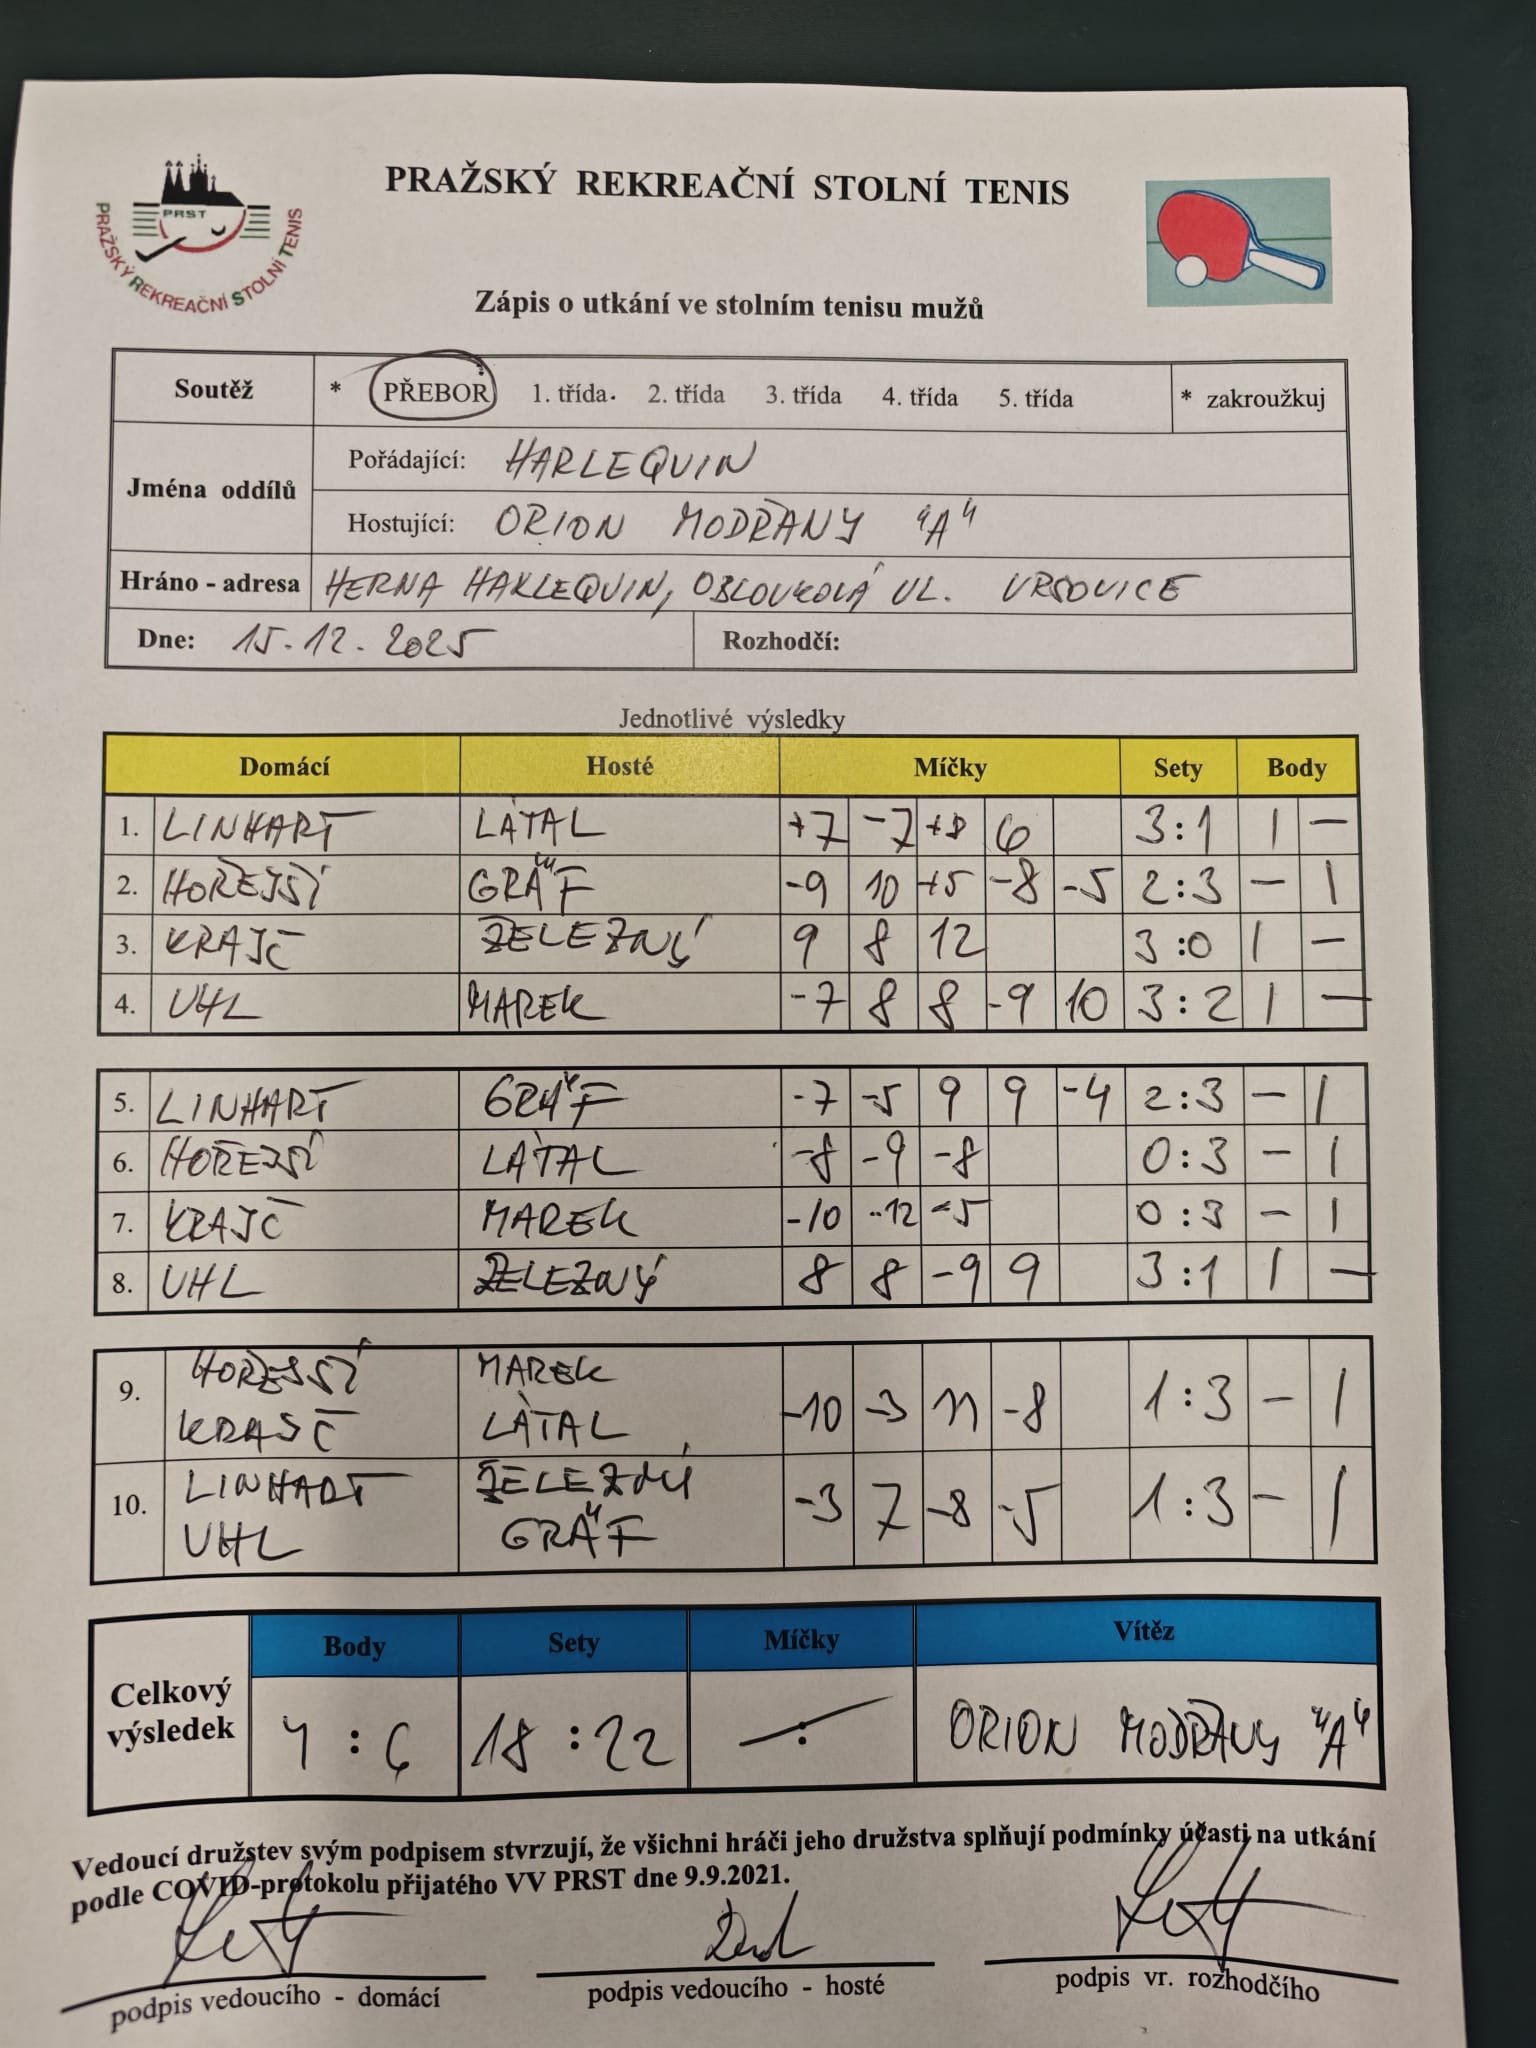 PRAŽSKÝ REKREAČNÍ STOLNÍ TENIS
PRST
PRAŽSKÝ REKREAČNÍ STOLNÍ TENIS
Zápis o utkání ve stolním tenisu mužů
Soutěž * PŘEBOR 1. třída. 2. třída 3. třída 4. třída 5. třída * zakroužkuj
Jména oddílů
Pořádající: HARLEQUIN
Hostující: ORION MODŘANY "A"
Hráno - adresa HERNA HARLEQUIN, OBLOUKOVÁ UL. VRSOVICE
Dne: 15.12.2025 Rozhodčí:
Jednotlivé výsledky
Domácí Hosté Míčky Sety Body
1. LINHART LÁTAL +7 -7 +8 6 3:1 1 –
2. HOŘEJŠÍ GRÄF -9 10 +5 -8 -5 2:3 – 1
3. KRAJČ ŽELEZNÝ 9 8 12 3:0 1 –
4. UHL MAREK -7 8 8 -9 10 3:2 1 –
5. LINHART GRÄF -7 -5 9 9 -4 2:3 – 1
6. HOŘEJŠÍ LÁTAL -8 -9 -8 0:3 – 1
7. KRAJČ MAREK -10 -12 -5 0:3 – 1
8. UHL ŽELEZNÝ 8 8 -9 9 3:1 1 –
9. HOŘEJŠÍ MAREK -10 -3 11 -8 1:3 – 1
KRAJČ LÁTAL
10. LINHART ŽELEZNÝ -3 7 -8 -5 1:3 – 1
UHL GRÄF
Body Sety Míčky Vítěz
Celkový výsledek 4 : 6 18 : 22 : ORION MODŘANY "A"
Vedoucí družstev svým podpisem stvrzují, že všichni hráči jeho družstva splňují podmínky účasti na utkání
podle COVID-protokolu přijatého VV PRST dne 9.9.2021.
podpis vedoucího - domácí podpis vedoucího - hosté podpis vr. rozhodčího